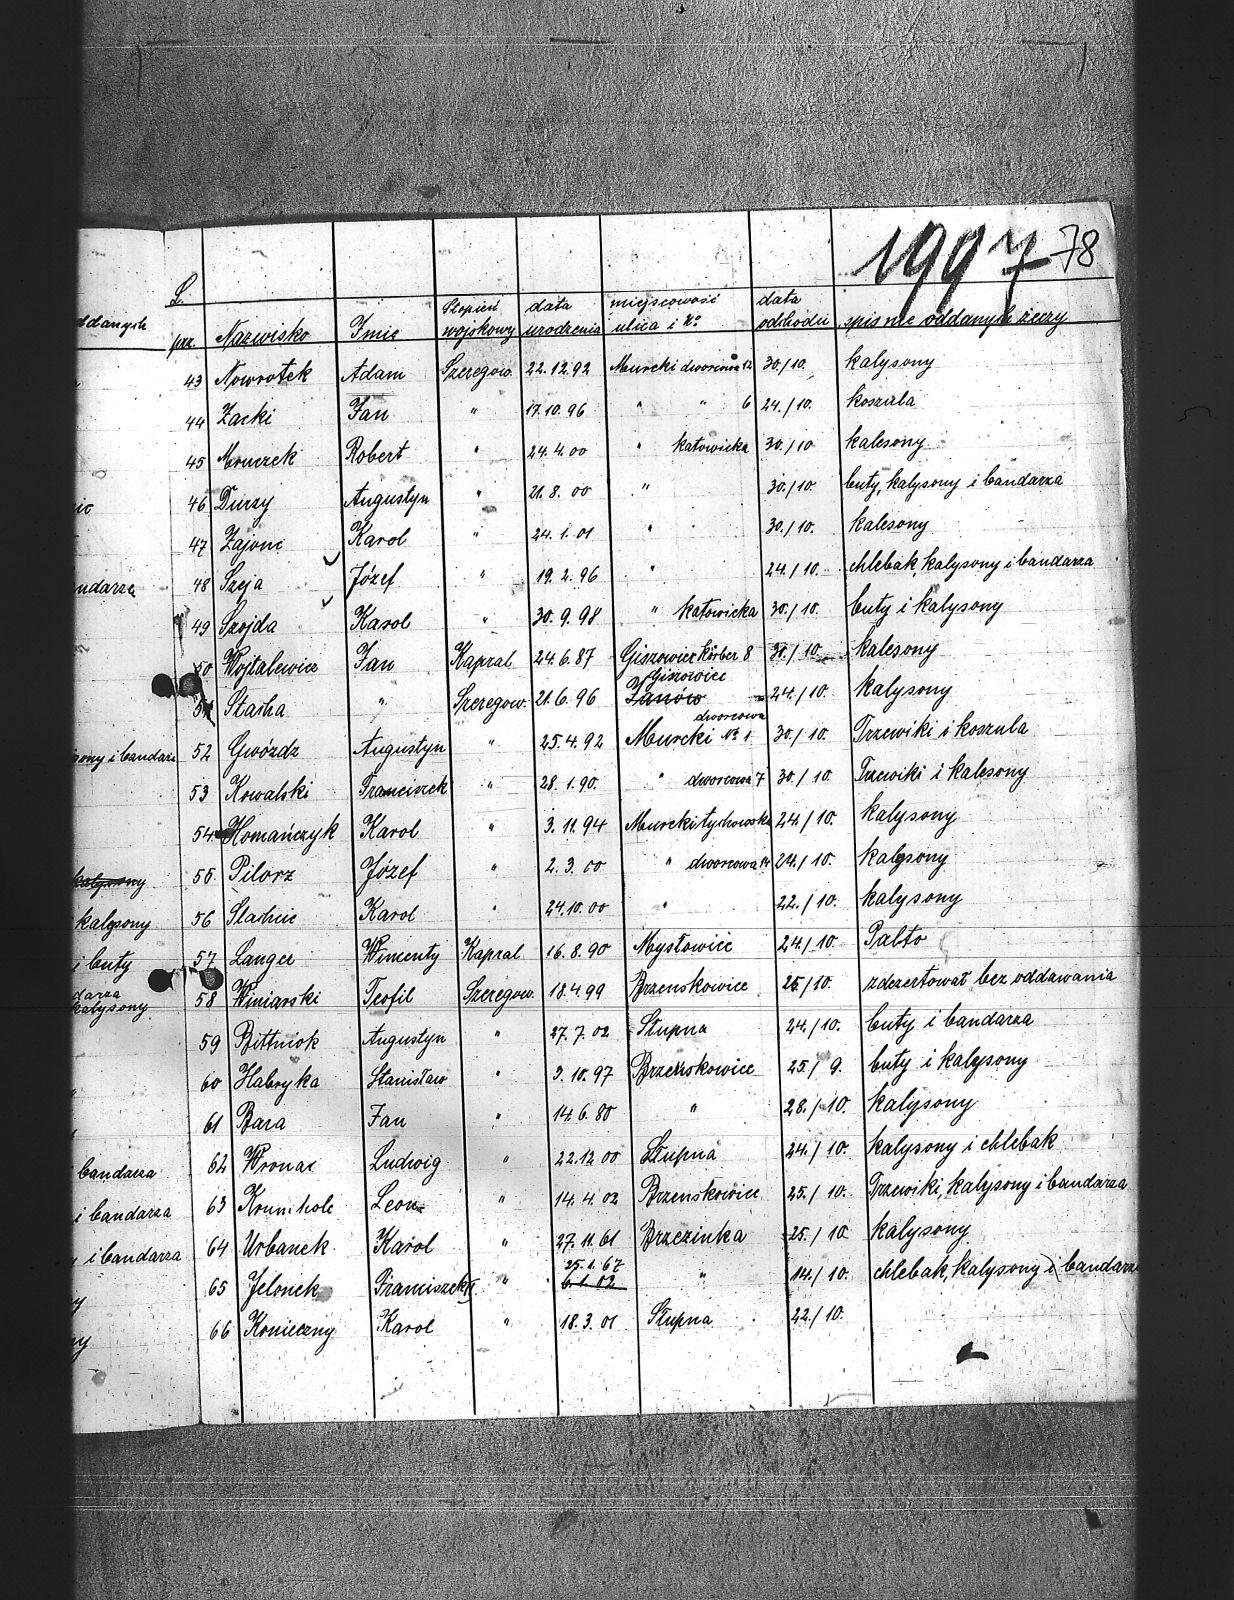 1997 78
L. prz. Nazwisko Imie Stopień wojskowy data urodzenia miejscowość ulica i No data odchodu spis nie oddanych rzeczy
43 Nowrotek Adam Szeregow. 22.12.92 Murcki dworcowa 12 30./10. kalysony
44 Zacki Jan " 17.10.96 " " 6 24./10. koszula
45 Mruczek Robert " 24.4.00 " katowicka 30./10 kalesony
46 Durzy Augustyn " 21.8.00 " 30./10. buty, kalysony i bandarza
47 Zajonc Karol " 24.1.01 " 30./10. kalesony
48 Szeja Józef " 19.2.96 " 24./10. chlebak, kalysony i bandarza
49 Szojda Karol " 30.9.98 " katowicka 30./10. buty i kalysony
50 Wojtalewicz Jan Kapral 24.6.87 Giszowiec Körber 8 30./10. kalesony
51 Stacha " Szeregow. 21.6.96 Janów Giszowiec 24./10. kalysony
52 Gwóżdz Augustyn " 25.4.92 Murcki dworcowa No 1 30./10. Trzewiki i koszula
53 Kowalski Franciszek " 28.1.90. " dworcowa 7 30./10. Trzewiki i kalesony
54 Homańczyk Karol " 3.11.94 Murcki tychowska 24./10. kalysony
55 Pilorz Józef " 2.3.00 " dworcowa 24./10. kalesony
56 Karol " 24.10.00 " 22./10. kalysony
57 Langer Wincenty Kapral 16.8.90 Mysłowice 24./10. Palto
58 Winiarski Teofil Szeregow. 18.4.99 Brzenskowice 25/10. zdezertował bez oddawania
59 Bittniok Augustyn " 27.7.02 Słupna 24./10. buty i bandarza
60 Habryka Stanisław " 3.10.97 Brzenskowice 25./9. buty i kalysony
61 Bara Jan " 14.6.80 " 28./10. kalysony
62 Wronac Ludwig " 22.12.00 Słupna 24./10. kalysony i chlebak
63 Leon " 14.4.02 Brzenskowice 25./10. Trzewiki, kalysony i bandarza
64 Urbanek Karol " 27.11.61 Brzezinka 25./10. kalysony
65 Jelonek Franciszek " 25.1.67 6.1.02 " 14./10. chlebak, kalysony i bandarza
66 Konieczny Karol " 18.3.01 Słupna 22./10.
ddanych
ndarza
sony i bandarz
kalysony
kalesony
i buty
darza
kalysony
bandarza
i bandarza
i bandarza